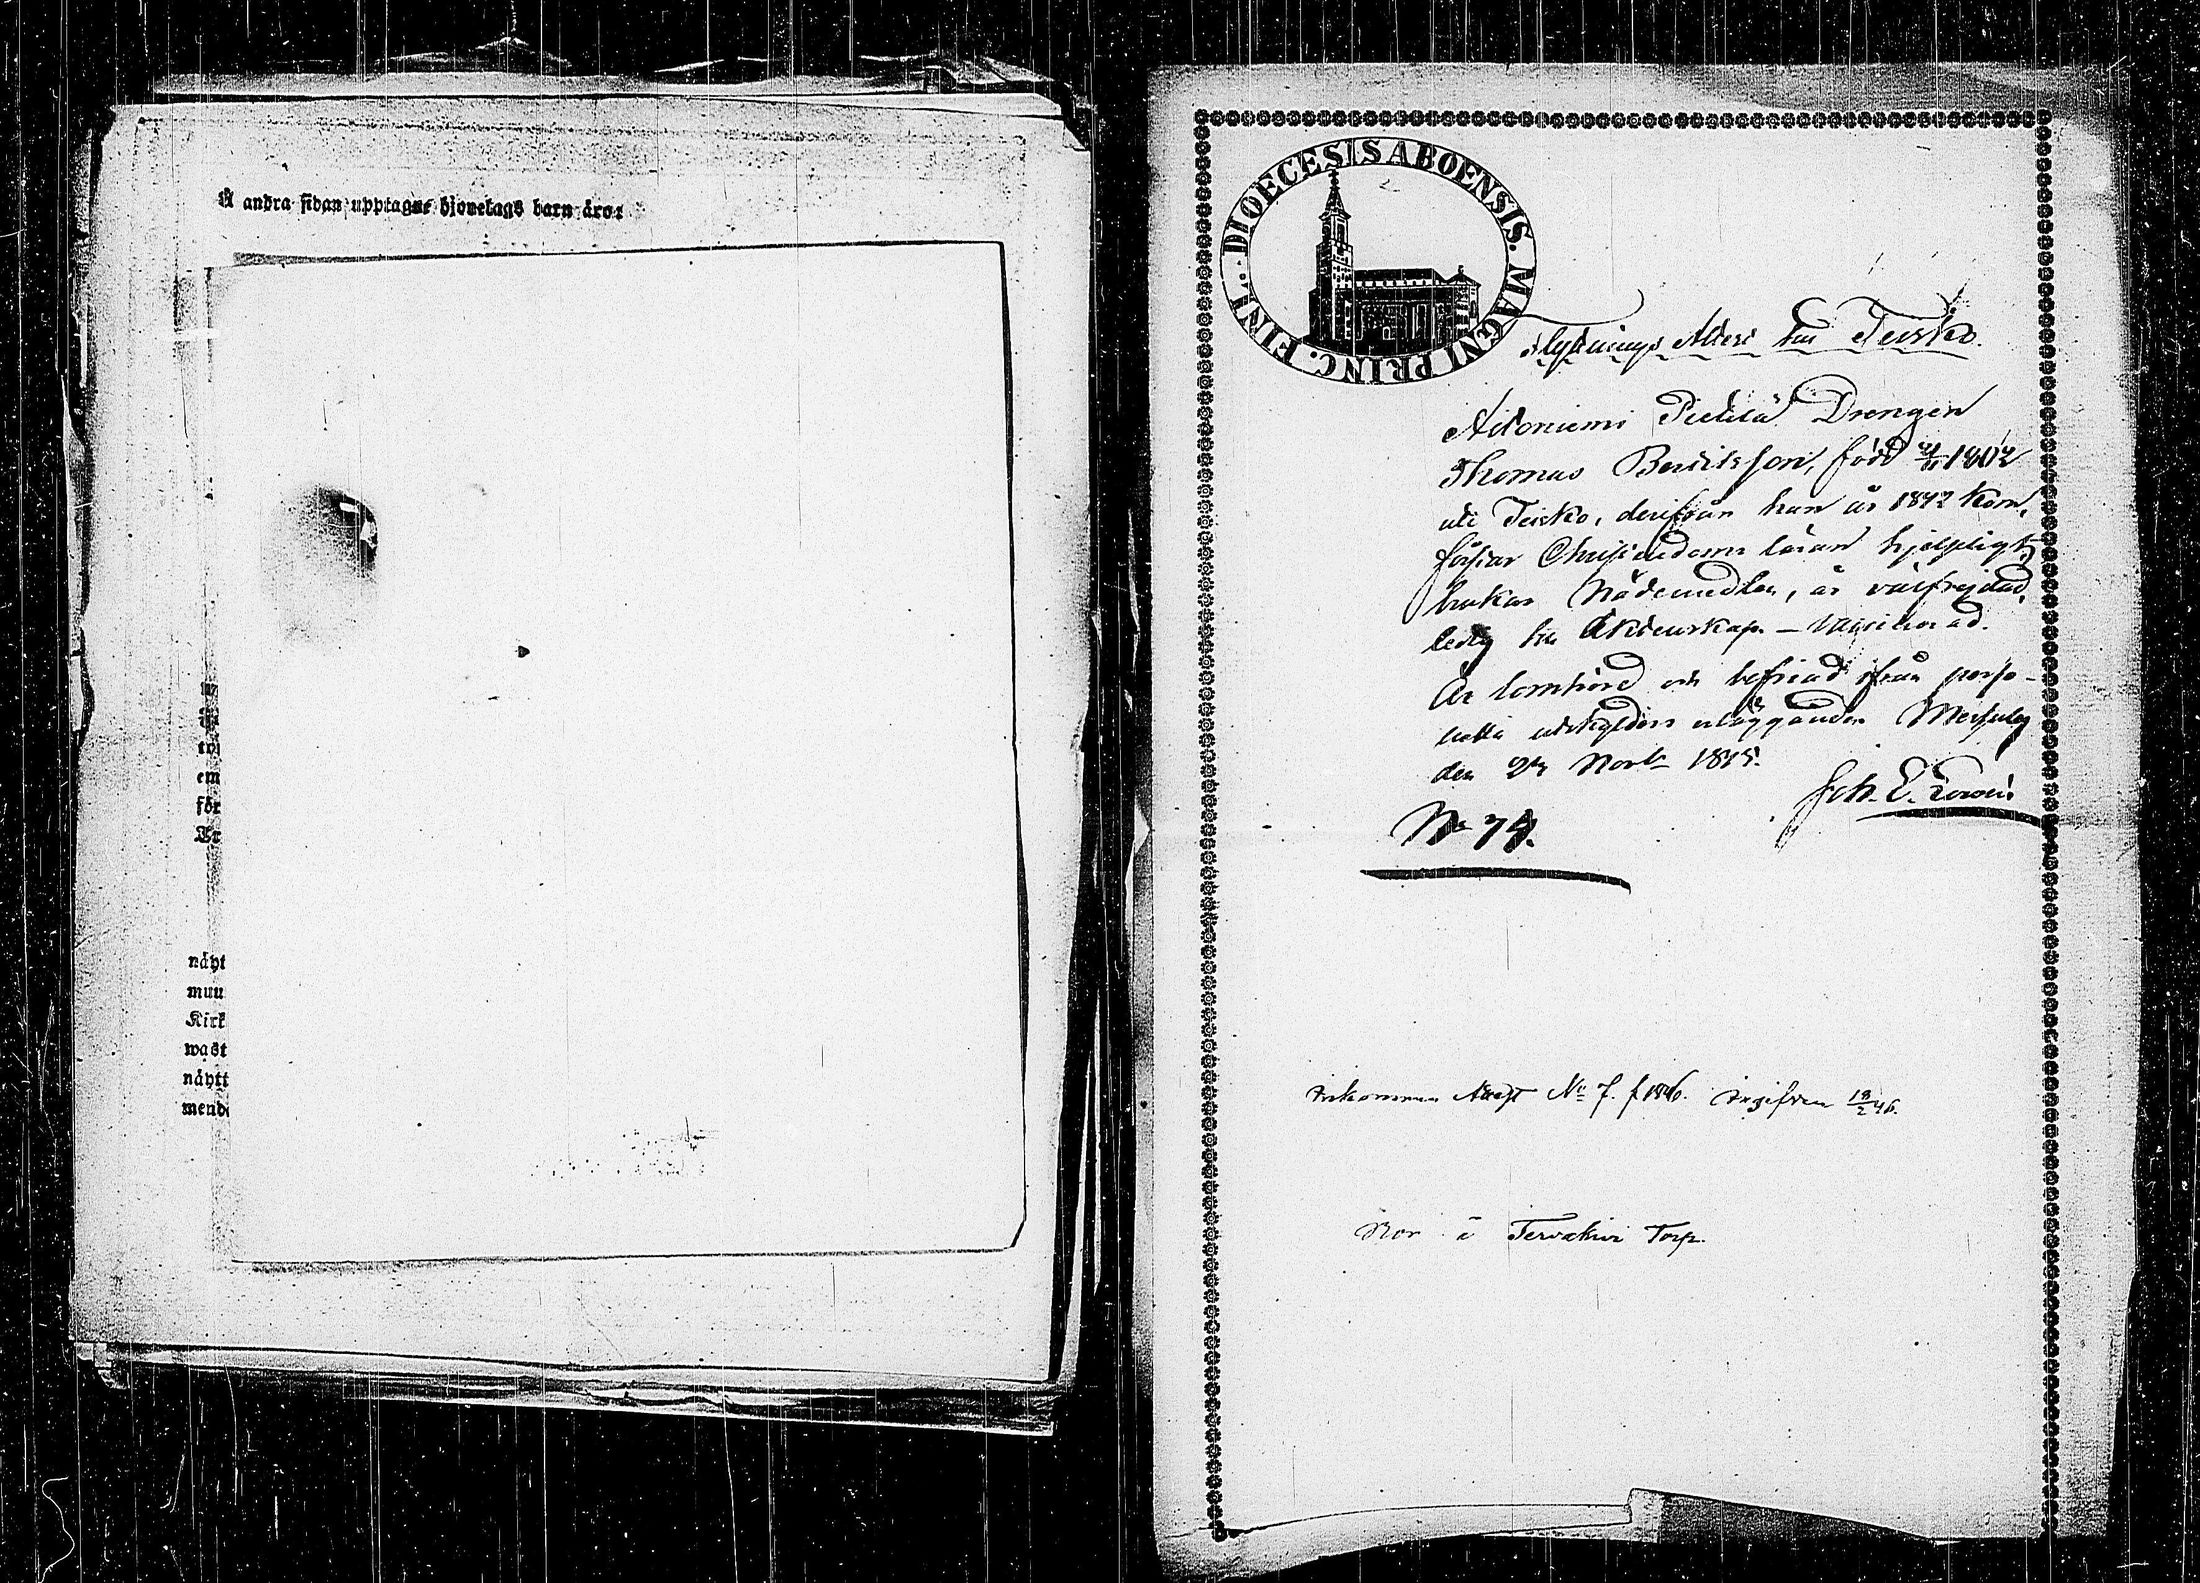 Å andra sidan upptagne hjonelags barn äro:
em
för
näyt
muu
Kirk
wast
näytt
mend
DIOECESIS ABOENSIS. MAGNI PRINC. FINL.
Flyttnings Attest till Teisko.
Aitoniemi Pietilä Drengen
Thomas född 1802
uti Teisko, derifrån han år 1842 kom,
förstår Christendoms läran hjelpligt,
brukar Nådemedlen, är välfrejdad,
ledig till Äktenskap – vaccinerad.
Är lomhörd och befriad ifrån perso-
nella utskylders erläggande. Messuby
den 1845.
Joh. E.
No 74.
Inkommen Attest No 7. f. 1846. Ingifven 18/2 46.
Bor i Torp.